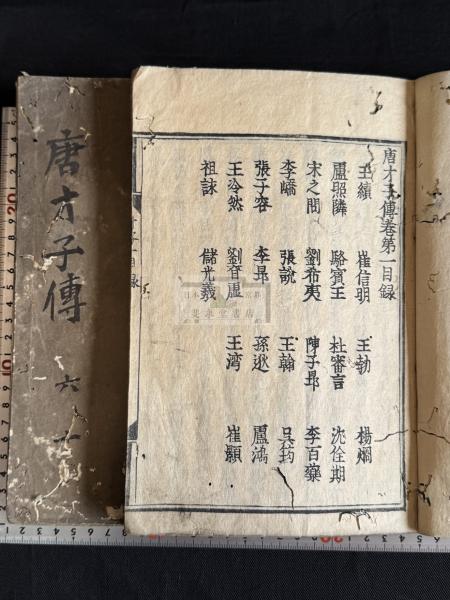 唐才子傳卷第一目録
王績 崔信明 王勃 楊烱
盧照隣 駱賓王 杜審言 沈佺期
宋之問 劉希夷 陳子昻 李百藥
李嶠 張說 王翰 吳筠
張子容 李昻 孫逖 盧鴻
王泠然 劉眘虛 王湾 崔顥
祖詠 儲光羲
目録
唐才子傳 六 十